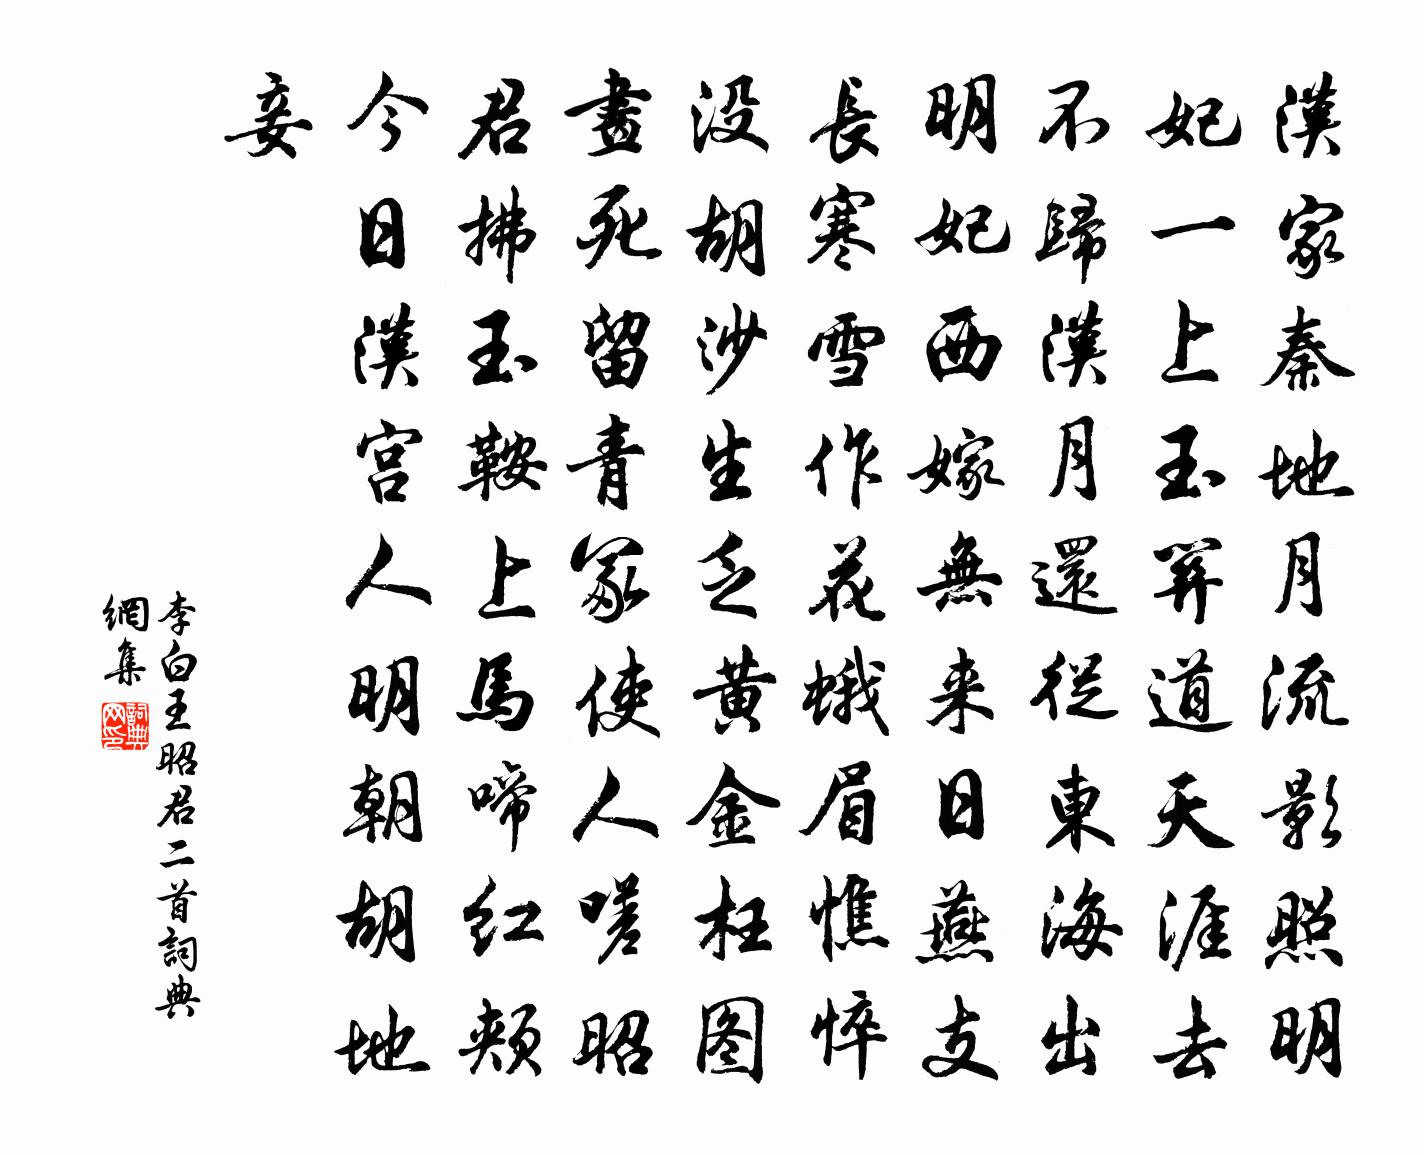 漢家秦地月流影照明
妃一上玉關道天涯去
不歸漢月還從東海出
明妃西嫁無来日燕支
長寒雪作花蛾眉憔悴
没胡沙生乏黄金枉图
畫死留青冢使人嗟昭
君拂玉鞍上馬啼红頰
今日漢宫人明朝胡地
妾
李白王昭君二首詞典
網集
詞典
网印